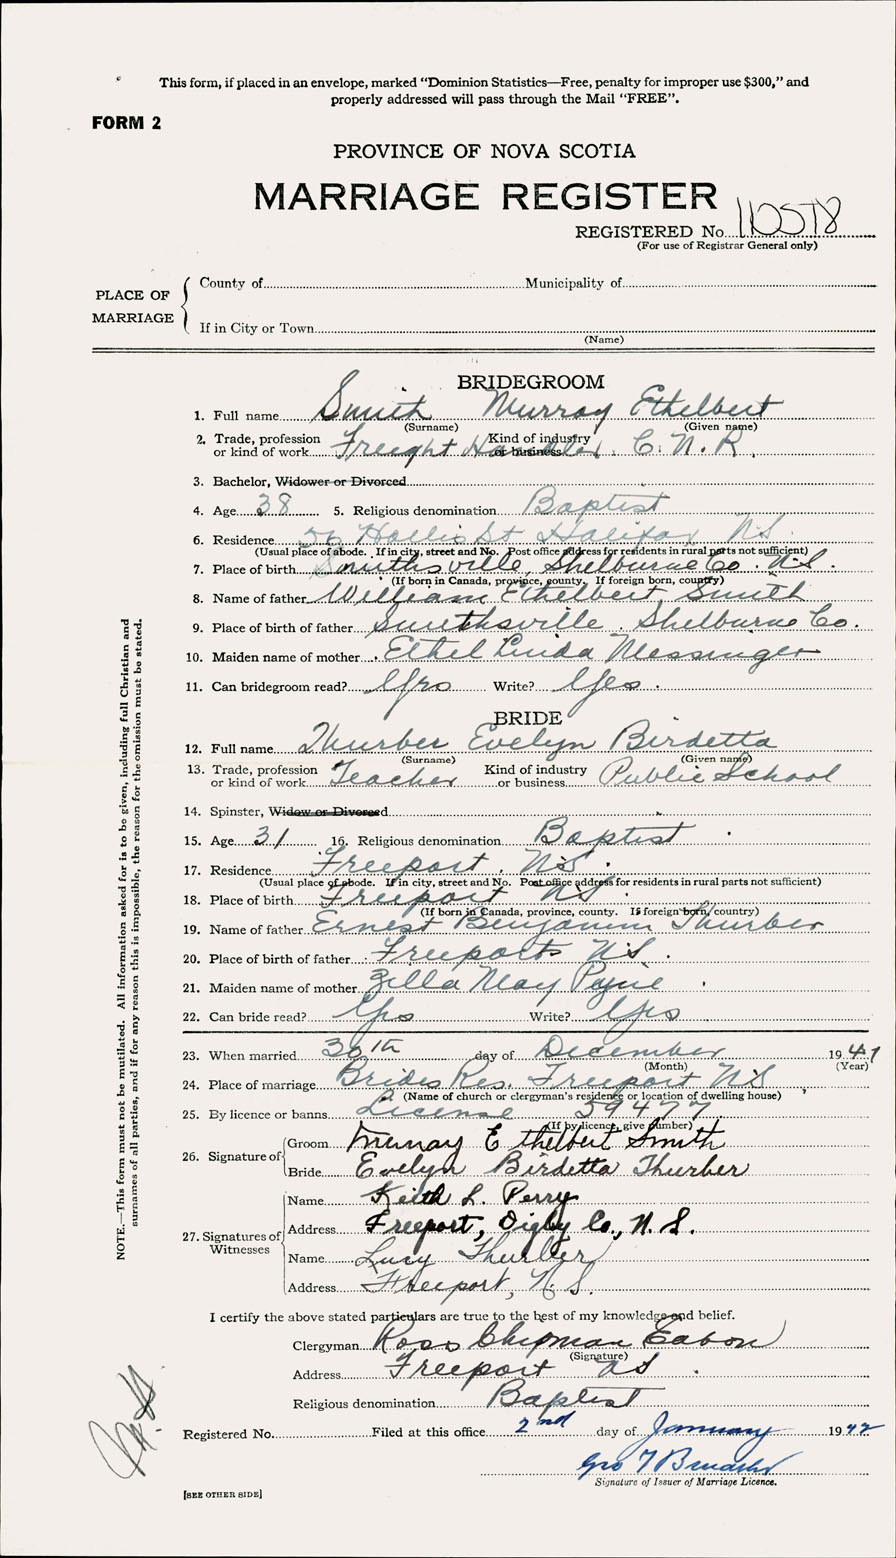 This form, if placed in an envelope, marked "Dominion Statistics—Free, penalty for improper use $300," and
properly addressed will pass through the Mail "FREE".
FORM 2
PROVINCE OF NOVA SCOTIA
MARRIAGE REGISTER
REGISTERED No.
(For use of Registrar General only)
PLACE OF MARRIAGE
County of Municipality of
If in City or Town
(Name)
BRIDEGROOM
1. Full name Smith Murray Ethelbert
(Surname) (Given name)
2. Trade, profession or kind of work Freight Handler Kind of industry or business C.N.R.
3. Bachelor, Widower or Divorced
4. Age 38 5. Religious denomination Baptist
6. Residence Hollis St Halifax N.S.
(Usual place of abode. If in city, street and No. Post office address for residents in rural parts not sufficient)
7. Place of birth Smithsville, Shelburne Co. N.S.
(If born in Canada, province, county. If foreign born, country)
8. Name of father William Ethelbert Smith
9. Place of birth of father Smithsville. Shelburne Co.
10. Maiden name of mother Ethel Linda Messinger
11. Can bridegroom read? Yes Write? Yes
BRIDE
12. Full name Thurber Evelyn Birdetta
(Surname) (Given name)
13. Trade, profession or kind of work Teacher Kind of industry or business Public School
14. Spinster, Widow or Divorced
15. Age 31 16. Religious denomination Baptist
17. Residence Freeport, N.S.
(Usual place of abode. If in city, street and No. Post office address for residents in rural parts not sufficient)
18. Place of birth Freeport N.S.
(If born in Canada, province, county. If foreign born, country)
19. Name of father Ernest Benjamin Thurber
20. Place of birth of father Freeport N.S.
21. Maiden name of mother Zella May Payne
22. Can bride read? Yes Write? Yes
23. When married 30th day of December 1941
(Month) (Year)
24. Place of marriage Brides Res. Freeport N.S
(Name of church or clergyman's residence or location of dwelling house)
25. By licence or banns License 59477
(If by licence, give number)
26. Signature of
Groom Murray Ethelbert Smith
Bride Evelyn Birdetta Thurber
27. Signatures of Witnesses
Name Keith L. Perry
Address Freeport, Digby Co., N.S.
Name Lucy Thurber
Address Freeport, N.S.
I certify the above stated particulars are true to the best of my knowledge and belief.
Clergyman Ross Chipman Eaton
(Signature)
Address Freeport NS
Religious denomination Baptist
Registered No. Filed at this office 2nd day of January 1942
Geo T
Signature of Issuer of Marriage Licence.
[SEE OTHER SIDE]
NOTE.—This form must not be mutilated. All information asked for is to be given, including full Christian and
surnames of all parties, and if for any reason this is impossible, the reason for the omission must be stated.